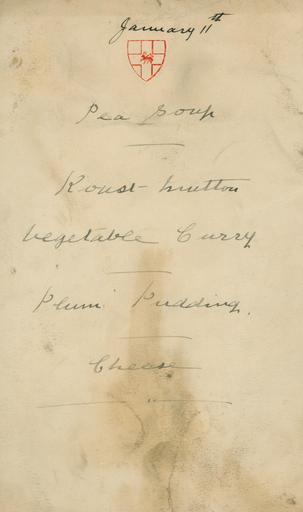 January 11th
Pea Soup
Roast mutton
Vegetable Curry
Plum Pudding.
Cheese